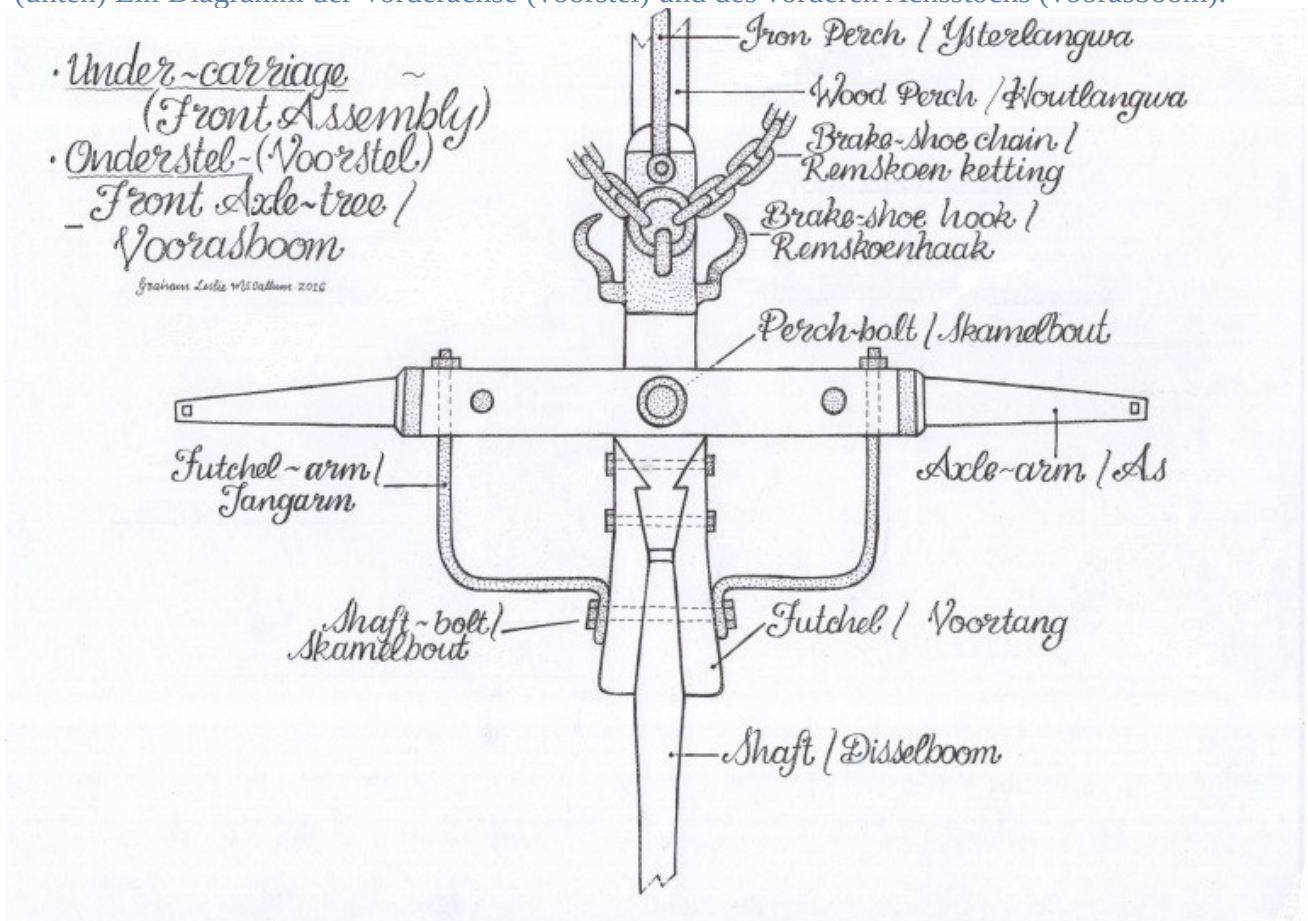 (unten) Ein Diagramm der Vorderachse (Voorstel) und des vorderen Achsstocks (Voorasboom).
· Under~carriage ~
(Front Assembly)
· Onderstel~(Voorstel)
– Front Axle~tree /
Voorasboom
Grahame Leslie McCallum 2016
Iron Perch / Ysterlangwa
Wood Perch / Houtlangwa
Brake~shoe chain /
Remskoen ketting
Brake~shoe hook /
Remskoenhaak
Perch~bolt / Skamelbout
Futchel~arm /
Tangarm
Axle~arm / As
Shaft~bolt /
Skamelbout
Futchel / Voortang
Shaft / Disselboom